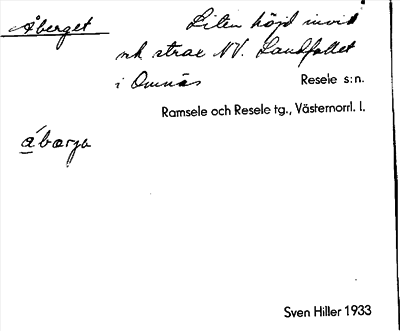 Åberget Liten höjd invid
nk strax NV. Landfallet
i Omnäs Resele s:n.
Ramsele och Resele tg., Västernorrl. l.
ábærja
Sven Hiller 1933